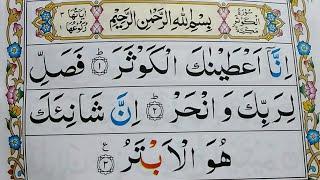 سُوْرَةُ الْكَوْثَرِ مَكِّيَّةٌ
بِسْمِ اللّٰهِ الرَّحْمٰنِ الرَّحِيْمِ
اِنَّاۤ اَعْطَيْنٰكَ الْكَوْثَرَ ؕ﴿۱﴾ فَصَلِّ
لِرَبِّكَ وَ انْحَرْ ؕ﴿۲﴾ اِنَّ شَانِئَكَ
هُوَ الْاَبْتَرُ ﴿۳﴾ ع